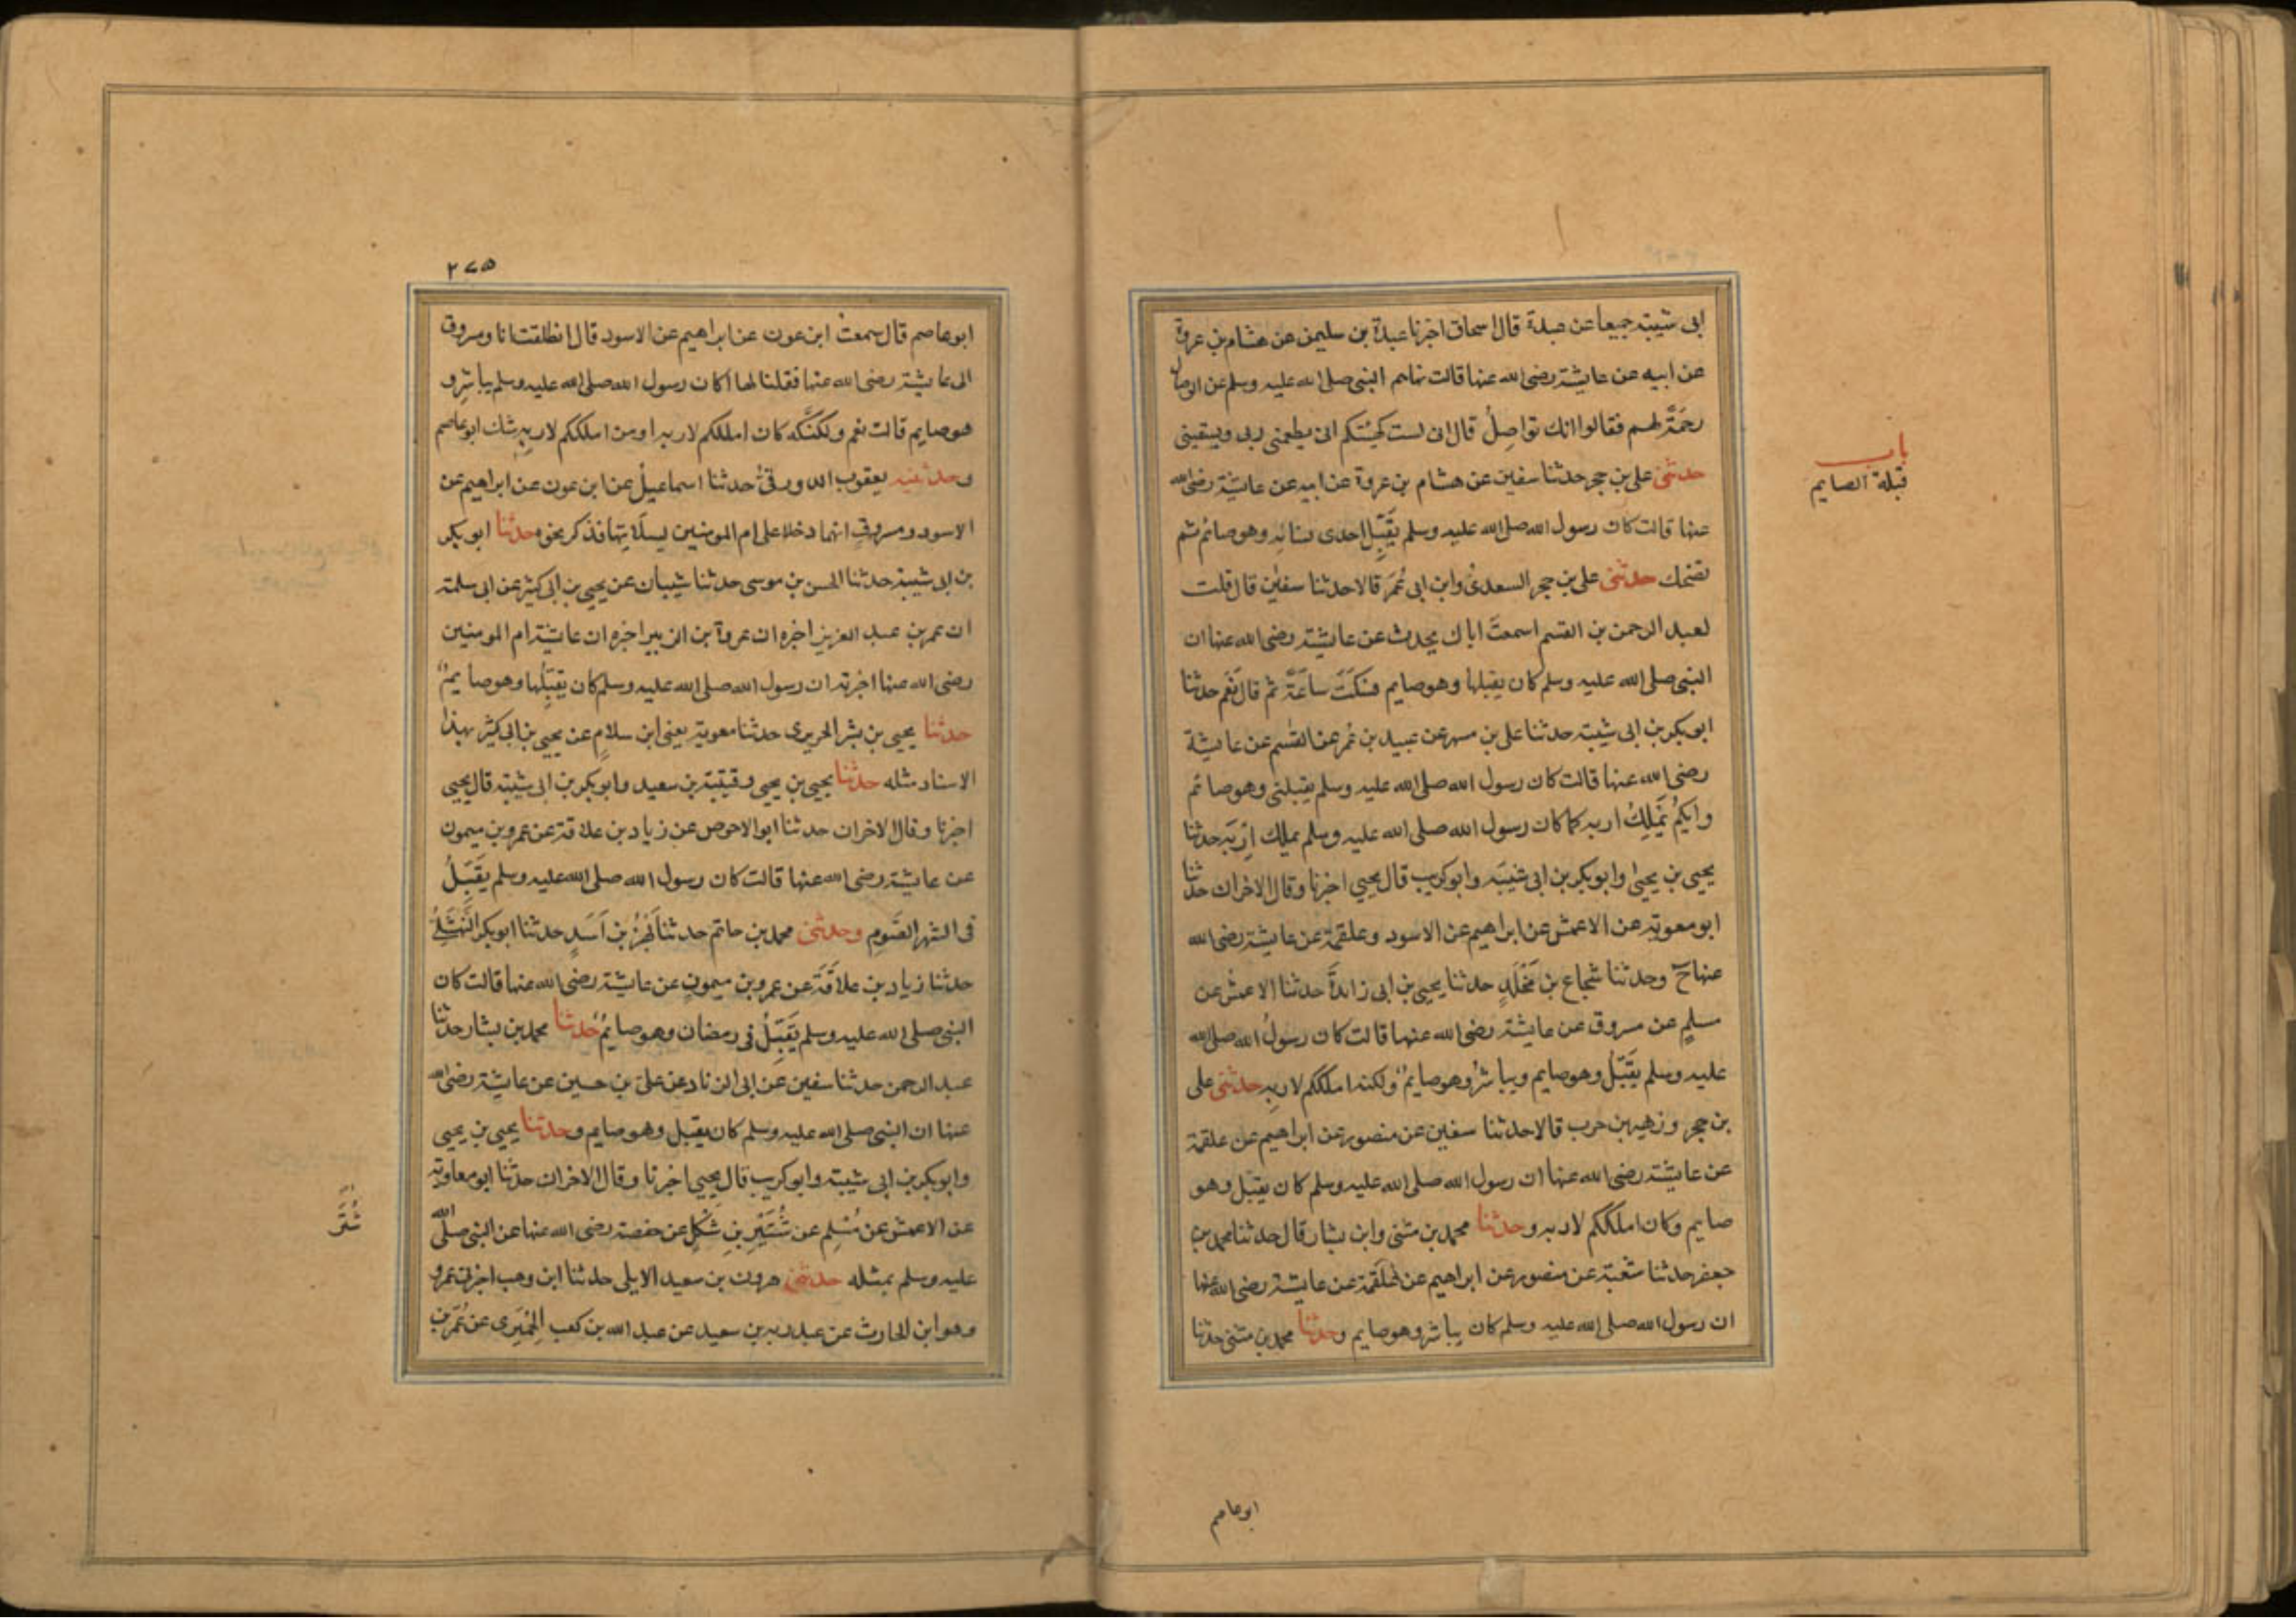 ابى شيبة جميعا عن عبدة قال اسحاق اخبرنا عبدة بن سليمن عن هشام بن عروة
عن ابيه عن عايشة رضى الله عنها قالت نهاهم النبى صلى الله عليه وسلم عن الوصال
رحمةً لهم فقالوا انك تواصلُ قال انى لست كهيئتكم انى يطعمنى ربى ويسقينى
باب
قبلة الصايم
حدثنى على بن حجر حدثنا سفين عن هشام بن عروة عن ابيه عن عايشة رضى الله
عنها قالت كان رسول الله صلى الله عليه وسلم يُقَبِّل احدى نسائه وهو صائم ثم
تضحك حدثنى على بن حجر السعدىُ وابن ابى عُمَرَ قالا حدثنا سفين قال قلت
لعبد الرحمن بن القسم اسمعتَ اباك يحدث عن عايشة رضى الله عنها ان
النبى صلى الله عليه وسلم كان يقبلها وهو صايم فسكتَ ساعَةً ثم قال نَعَم حدثنا
ابو بكر بن ابى شيبة حدثنا على بن مسهر عن عبيد بن عُمر عن القسم عن عايشة
رضى الله عنها قالت كان رسول الله صلى الله عليه وسلم يقبلنى وهو صائم
وايكم يَملِكُ اربه كما كان رسول الله صلى الله عليه وسلم يملك اِرْبَه حدثنا
يحيى بن يحيى وابو بكر بن ابى شيبَة وابو كريب قال يحيى اخبرنا وقال الاخران حدثنا
ابو معوية عن الاعمش عن ابراهيم عن الاسود وعلقمة عن عايشة رضى الله
عنها ح وحدثنا شجاع بن مَخْلَدٍ حدثنا يحيى بن ابى زائدةَ حدثنا الاعمش عن
مسلمٍ عن مسروق عن عايشة رضى الله عنها قالت كان رسولُ الله صلى الله
عليه وسلم يُقَبِّل وهو صايم ويباشرُ وهو صايمٌ ولكنه املككم لاربِه حدثنى على
بن حجر وزهير بن حرب قالا حدثنا سفين عن منصور عن ابراهيم عن علقمة
عن عايشة رضى الله عنها ان رسول الله صلى الله عليه وسلم كان يقبل وهو
صايم وكان املككم لاربه وحدثنا محمد بن مثنى وابن بشار قال حدثنا محمد بن
جعفر حدثنا شعبة عن منصور عن ابراهيم عن عَلقَمة عن عايشة رضى الله عنها
ان رسول الله صلى الله عليه وسلم كان يباشر وهو صايم وحدثنا محمد بن مثنى حدثنا
ابو عاصم
٢٧٥
ابو عاصم قال سمعت ابن عون عن ابراهيم عن الاسود قال انطلقت انا ومسروق
الى عايشة رضى الله عنها فقلنا لها اكان رسول الله صلى الله عليه وسلم يباشِر و
هو صايم قالت نعم ولكنَّه كان املككم لاربه او من املككم لاربِه شك ابو عاصم
وحدثنيه يعقوب الدورقىُ حدثنا اسماعيلُ عن ابن عون عن ابراهيم عن
الاسود ومسروقٍ انهما دخلا على ام المومنين يسلانها فذكر نحوه حدثنا ابو بكر
بن ابى شيبة حدثنا الحسن بن موسى حدثنا شيبان عن يحيى بن ابى كثير عن ابى سلمة
ان عمر بن عبد العزيز اخبره ان عروة بن الزبير اخبره ان عايشة ام المومنين
رضى الله عنها اخبرته ان رسول الله صلى الله عليه وسلم كان يُقَبِّلُها وهو صايمٌ
حدثنا يحيى بن بشر الحريرى حدثنا معوية يعنى ابن سلامٍ عن يحيى بن ابى كثير بهذا
الاسناد مثله حدثنا يحيى بن يحيى وقتيبة بن سعيد وابو بكر بن ابى شيبة قال يحيى
اخبرنا وقال الاخران حدثنا ابو الاحوص عن زياد بن علاقة عن عمرو بن ميمون
عن عايشة رضى الله عنها قالت كان رسول الله صلى الله عليه وسلم يُقَبِّلُ
فى الشهر الصَوم وحدثنى محمد بن حاتم حدثنا بَهْزُ بن اَسَدٍ حدثنا ابو بكر النَّهْشَلِىُّ
حدثنا زياد بن علاقَةَ عن عمرو بن ميمونٍ عن عايشة رضى الله عنها قالت كان
النبى صلى الله عليه وسلم يُقَبِّلُ فى رمضان وهو صايمٌ حدثنا محمد بن بشار حدثنا
عبد الرحمن حدثنا سفين عن ابى الزناد عن على بن حسين عن عايشة رضى الله
عنها ان النبى صلى الله عليه وسلم كان يقبل وهو صايم وحدثنا يحيى بن يحيى
وابو بكر بن ابى شيبة وابو كريب قال يحيى اخبرنا وقال الاخران حدثنا ابو معاوية
عن الاعمش عن مُسْلِم عن شُتَيْرِ بنِ شَكَلٍ عن حفصة رضى الله عنها عن النبى صلى الله
عليه وسلم بمثله حدثنى هرون بن سعيد الايلى حدثنا ابن وهب اخبرنى عمرو
وهو ابن الحارث عن عبد ربه بن سعيد عن عبد الله بن كعب الحِمْيَرى عن عُمَر بن